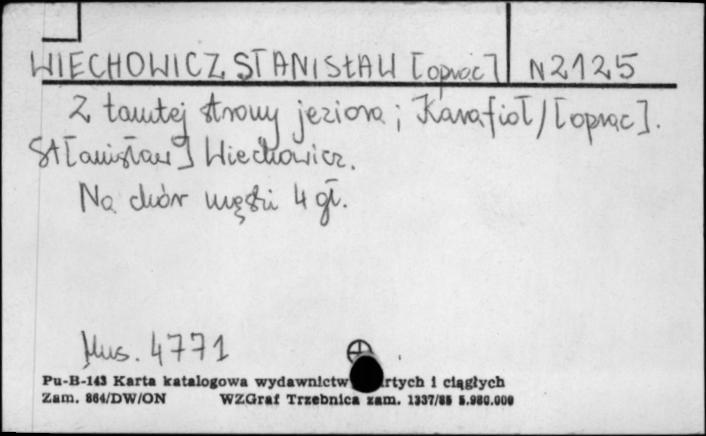 WIECHOWICZ STANISŁAW [oprac] N 2125
Z tamtej strony jeziora; Karafioł / [oprac].
St[anisław] Wiechowicz.
Na chór męski 4 gł.
Mus. 4771
Pu-B-143 Karta katalogowa wydawnictw rtych i ciągłych
Zam. 864/DW/ON WZGraf Trzebnica zam. 1337/85 5.980.000